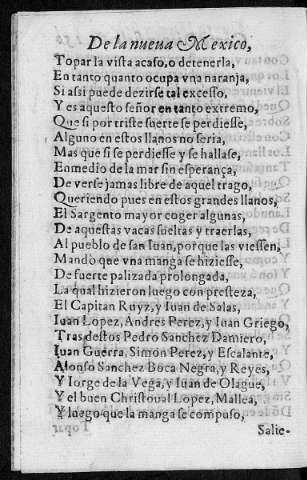 De la nueua Mexico,
Topar la vista acaso, o detenerla,
En tanto quanto ocupa vna naranja,
Si assi puede dezirse tal excesso,
Y es aquesto señor en tanto extremo,
Que si por triste suerte se perdiesse,
Alguno en estos llanos no seria,
Mas que si se perdiesse y se hallase,
Enmedio de la mar sin esperança,
De verse jamas libre de aquel trago,
Queriendo pues en estos grandes llanos,
El Sargento mayor coger algunas,
De aquestas vacas sueltas y traerlas,
Al pueblo de san Iuan, porque las viessen,
Mando que vna manga se hiziesse,
De fuerte palizada prolongada,
La qual hizieron luego con presteza,
El Capitan Ruyz, y Iuan de Salas,
Iuan Lopez, Andres Perez, y Iuan Griego,
Tras destos Pedro Sanchez Damiero,
Iuan Guerra, Simon Perez, y Escalante,
Alonso Sanchez Boca Negra, y Reyes,
Y Iorge de la Vega, y Iuan de Olague,
Y el buen Christoual Lopez, Mallea,
Y luego que la manga se compuso,
Salie-